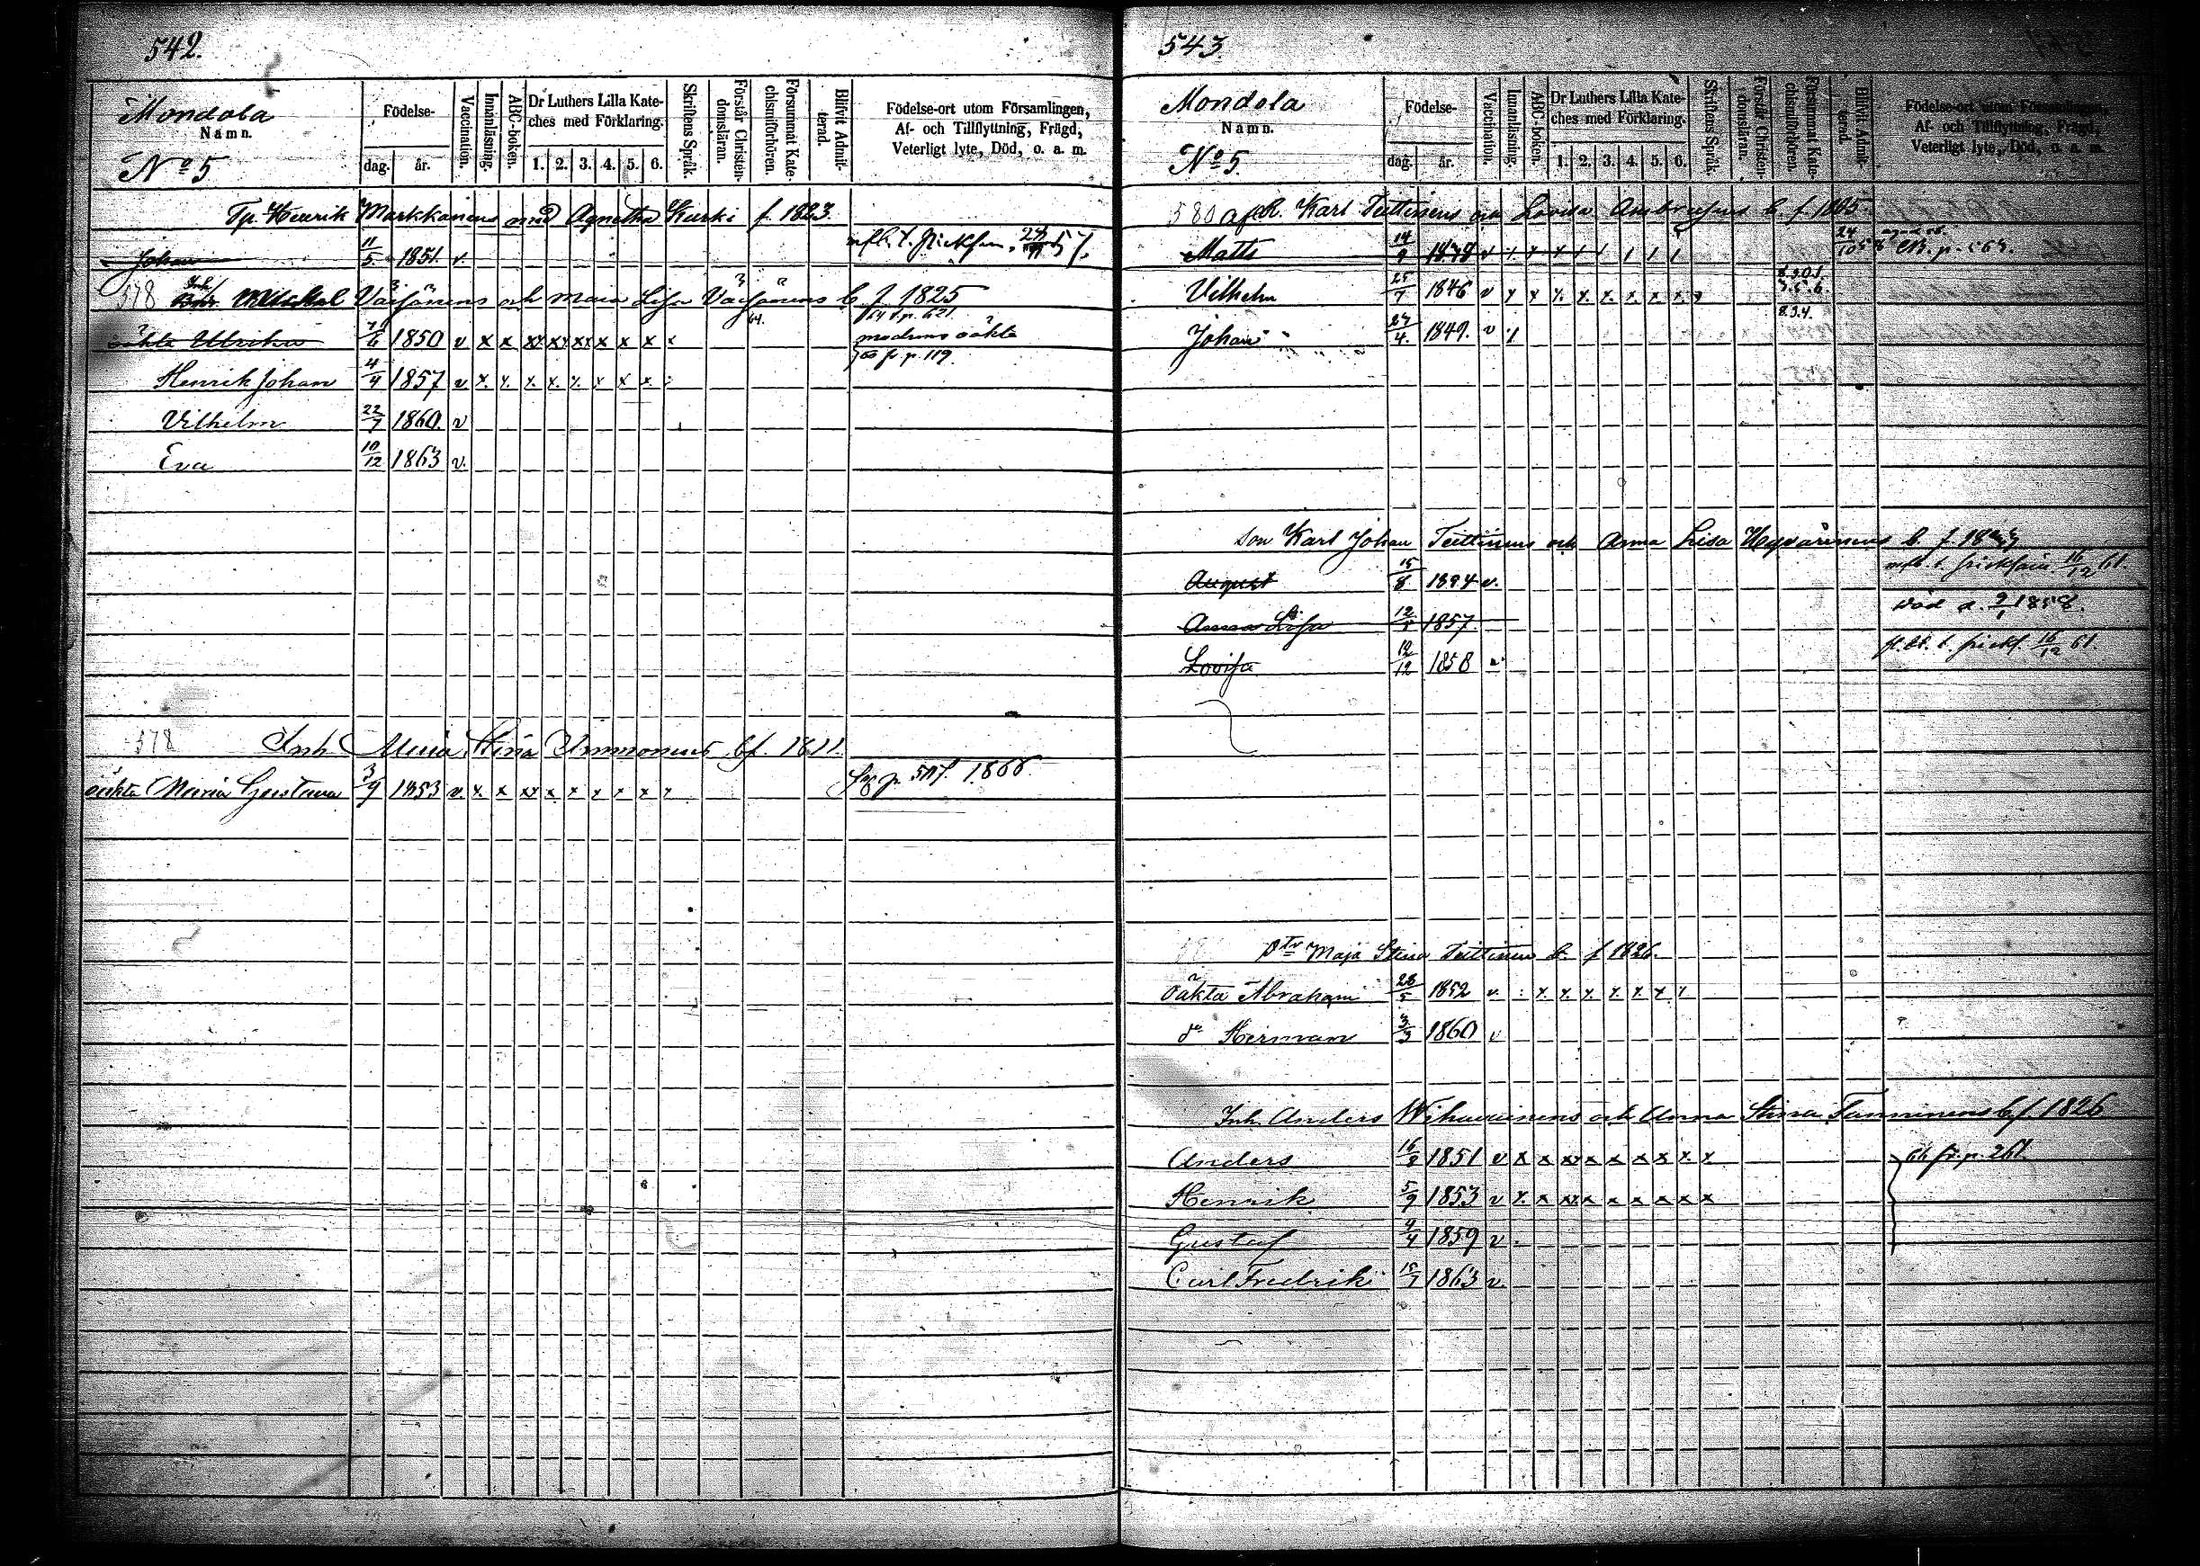 542.
Mondola
Namn.
No 5
Födelse-
dag.
år.
Vaccination.
Innanläsning.
ABC-boken.
Dr Luthers Lilla Kate-
ches med Förklaring.
1. 2. 3. 4. 5. 6.
Skriftens Språk.
Förstår Christen-
domsläran.
Försummat Kate-
chismiförhören.
Blifvit Admit-
terad.
Födelse-ort utom Församlingen,
Af- och Tillflyttning, Frägd,
Veterligt lyte, Död, o. a. m.
Tp. Henrik Markkanens med Agnetha Kurki f. 1823.
Johan 11/5 1851. v.
578 Michel och Maria Lisa b. f. 1825
oäkta Ullrika 1850 v x x xx xx xx x x x x modrens oäkta
fr p. 119.
Henrik Johan 4/4 1857 v x x x x x x x x
Vilhelm 22/7 1860. v
Eva 10/12 1863 v.
578 Inh. Maria Stina Ammonens b f. 1811.
oäkta Maria Gustava 3/9 1853 v. x x xx x x x x x x p. 1866.
543.
Mondola
Namn.
No 5.
Födelse-
dag.
år.
Vaccination.
Innanläsning.
ABC-boken.
Dr Luthers Lilla Kate-
ches med Förklaring.
1. 2. 3. 4. 5. 6.
Skriftens Språk.
Förstår Christen-
domsläran.
Försummat Kate-
chismiförhören.
Blifvit Admit-
terad.
Födelse-ort utom Församlingen,
Af- och Tillflyttning, Frägd,
Veterligt lyte, Död, o. a. m.
580 Karl Teittinens och Lovisa b. f. 1805
Matts 14/9 p. 563.
Vilhelm 25/7 1846 v x x x x x x x x x
Johan 27/4. 1849. v
Son Karl Johan Teittinens och Anna Lisa Hyvärinens b. f.
August 15/8 v. 16/12 61.
Anna Lisa 1857. död d. 9/1 1858.
Lovisa 12/12 1858 v 16/12 61.
Dtr Maja Stina Teittinen b. f 1826.
Oäkta Abraham 28/5 1852 v. x x x x x x x
do Herman 3/3 1860 v
Inh. Anders och Anna Stina b f. 1826
Anders 16/8 1851 v x x xx x x x x x x p. 261.
Henrik 5/9 1853 v x x xx x x x x x x
Gustaf 4/4 1859 v
Carl Fredrik 15/7 1863 v